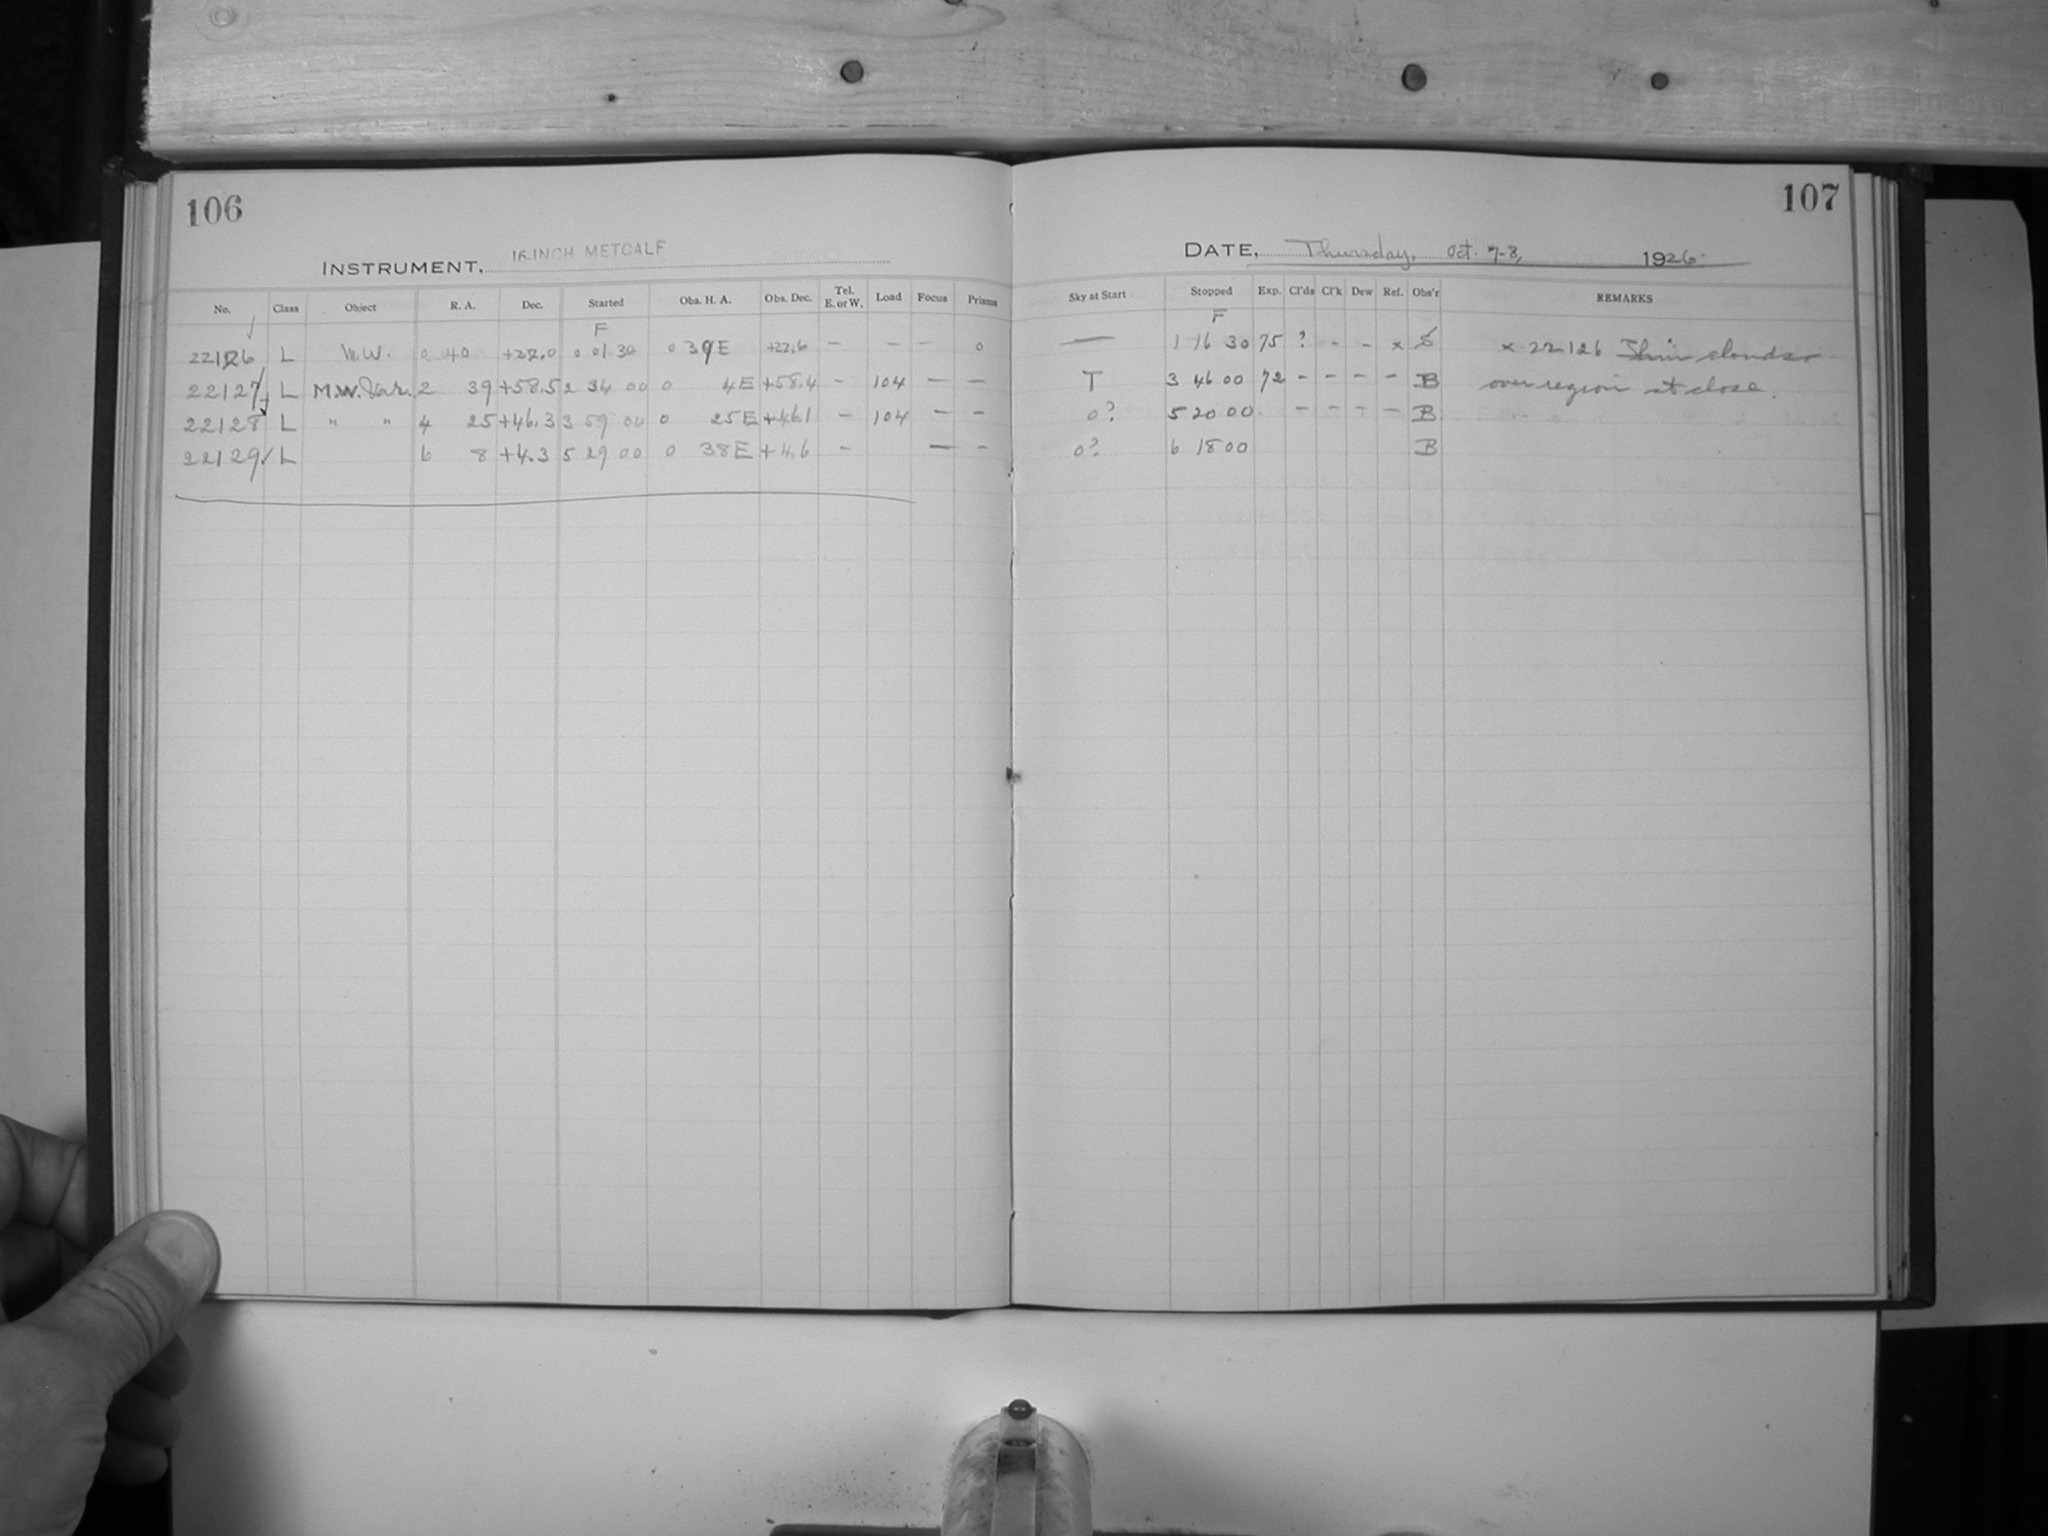 106
INSTRUMENT, 16-INCH METCALF
No. Class Object R. A. Dec. Started Obs. H. A. Obs. Dec. Tel. E. or W. Load Focus Prisms
F
22126 L M.W. 0 40 +22.0 0 01 30 0 39 E +22.6 — — — 0
22127 L M.W. 2 39 +58.5 2 34 00 0 4 E +58.4 - 104 — —
22128 L " " 4 25 +46.3 3 59 00 0 25 E +46.1 - 104 — —
22129 L 6 8 +4.3 5 29 00 0 38 E +4.6 - — -
107
DATE, Thursday, Oct. 7-8, 1926.
Sky at Start Stopped Exp. Cl'ds Cl'k Dew Ref. Obs'r REMARKS
F
— 1 16 30 75 ? - - x S x 22126 Thin clouds
T 3 46 00 72 - - - - B over region at close.
0? 5 20 00 - - - - B
0? 6 18 00 B